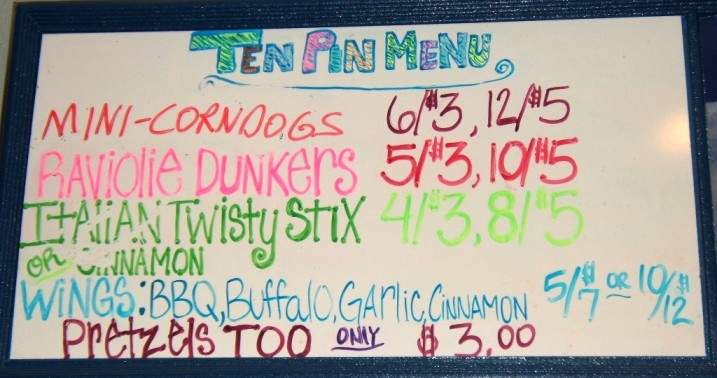 TEN PIN MENU
MINI-CORNDOGS 6/$3, 12/$5
RAViOliE DUNKERS 5/$3, 10/$5
ITAliAN TWisty StiX 4/$3, 8/$5
OR CINNAMON
WiNGS: BBQ, Buffalo, GArlic, CiNNAMON 5/$7 OR 10/$12
Pretzels TOO ONLY $3.00